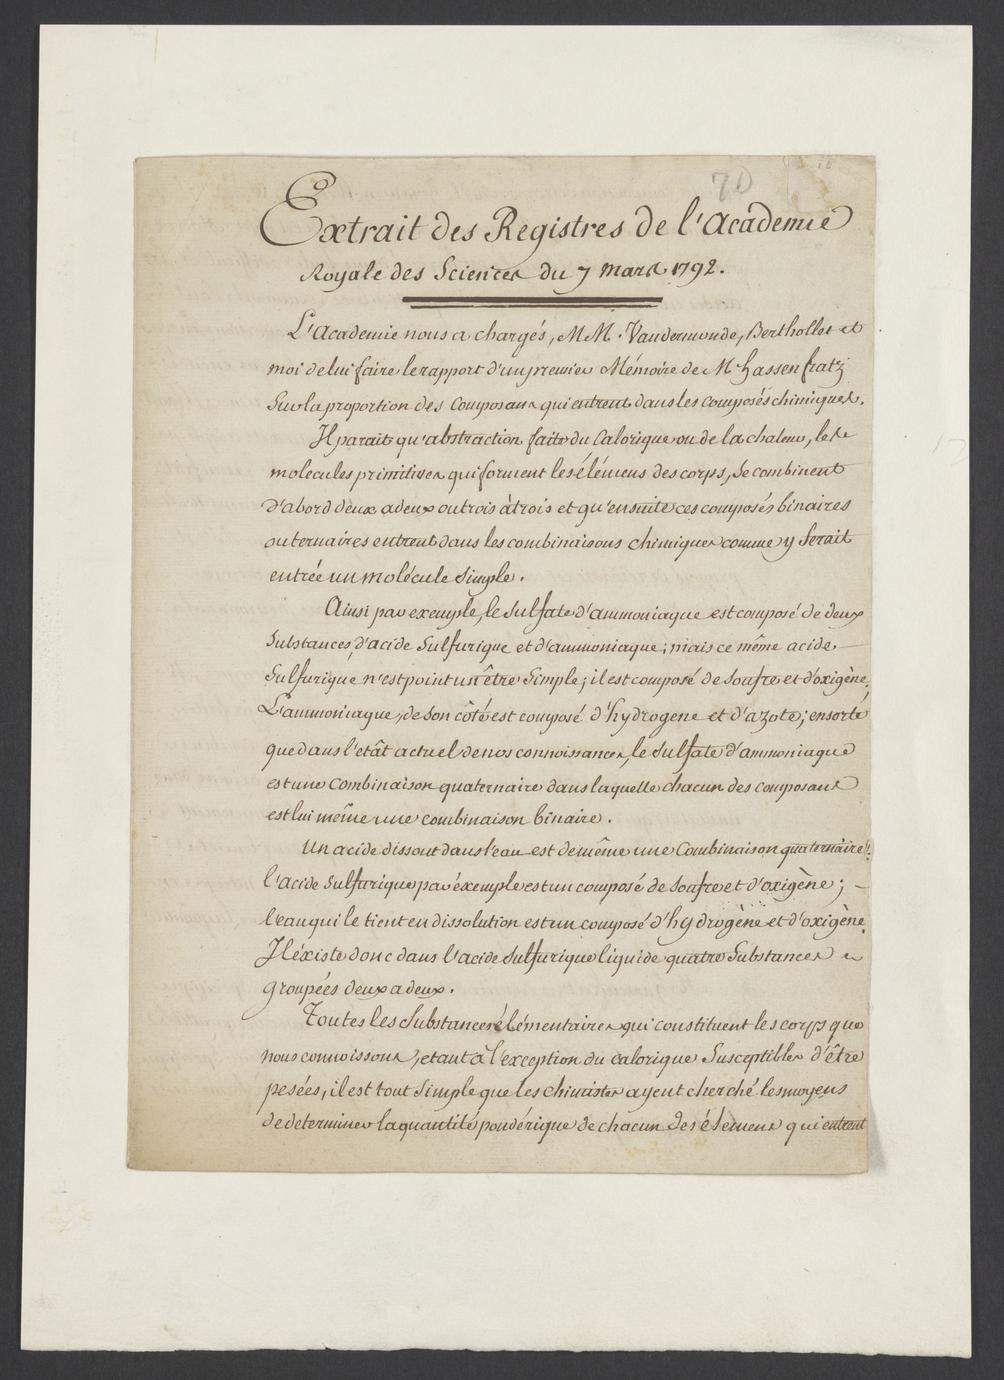 70
Extrait des Registres de l'Academie
Royale des Sciences du 7 mars 1792.
L'Academie nous a chargés, MM. Vandermonde, Berthollet et
moi de lui faire le rapport d'un premier Mémoire de Mr hassenfratz
Sur la proportion des Composans qui entrent dans les composés chimiques.
Il parait qu'abstraction faite du Calorique ou de la chaleur, les
molecules primitives qui forment les élémens des corps, se combinent
d'abord deux a deux ou trois à trois et qu'ensuite ces composés binaires
ou ternaires entrent dans les combinaisons chimiques comme y serait
entrée un molécule simple.
Ainsi par exemple, le sulfate d'ammoniaque est composé de deux
Substances, d'acide Sulfurique et d'ammoniaque; mais ce même acide
Sulfurique n'est point un être Simple; il est composé de soufre et d'oxigène.
L'ammoniaque, de son côté est composé d'hydrogene et d'azote; ensorte
que dans l'etât actuel de nos connoissances, le Sulfate d'ammoniaque
est une Combinaison quaternaire dans laquelle chacun des composant
est lui même une combinaison binaire.
Un acide dissout dans l'eau est de même une Combinaison quaternaire:
l'acide Sulfurique par éxemple est un composé de Soufre et d'oxigène;
l'eau qui le tient en dissolution est un composé d'hydrogène et d'oxigène.
Il éxiste donc dans l'acide Sulfurique liquide quatre Substances
groupées deux a deux.
Toutes les Substances élémentaires qui constituent les corps que
nous connoissons, étant à l'exception du calorique Susceptibles d'être
pesées, il est tout Simple que les chimistes ayent cherché les moyens
de determiner la quantité pondérique de chacun des élèmens qui entrent